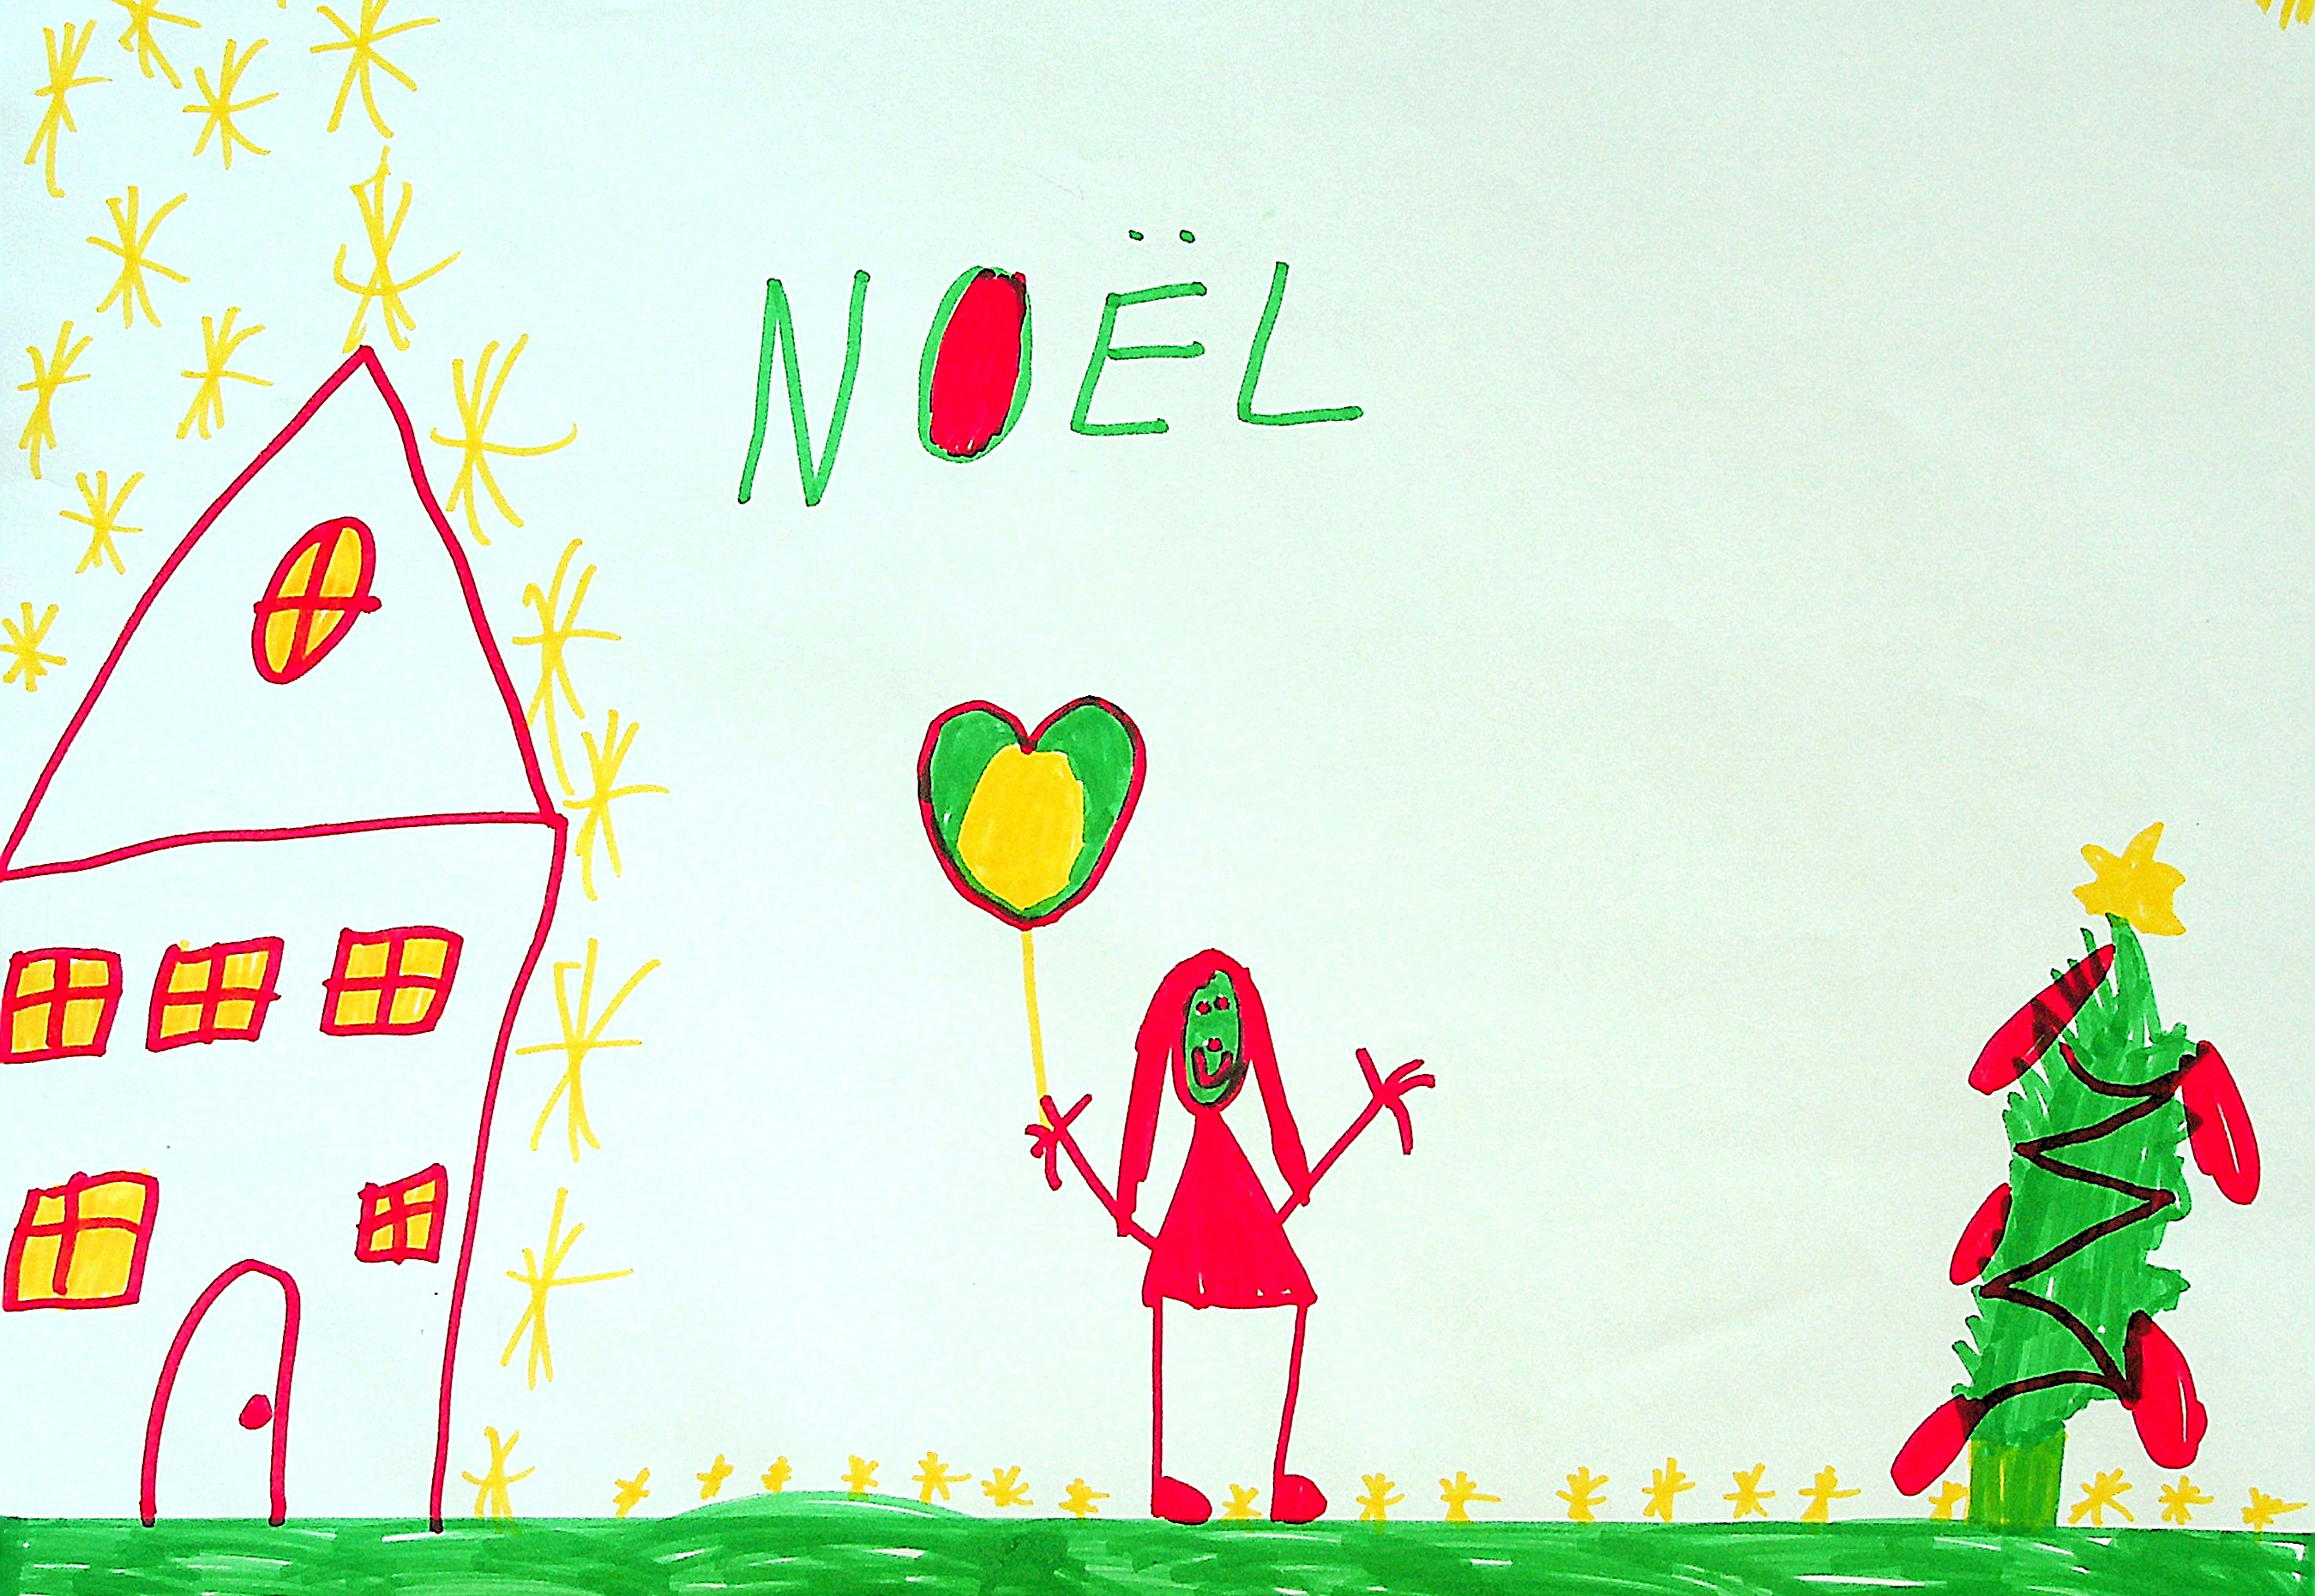 NOËL